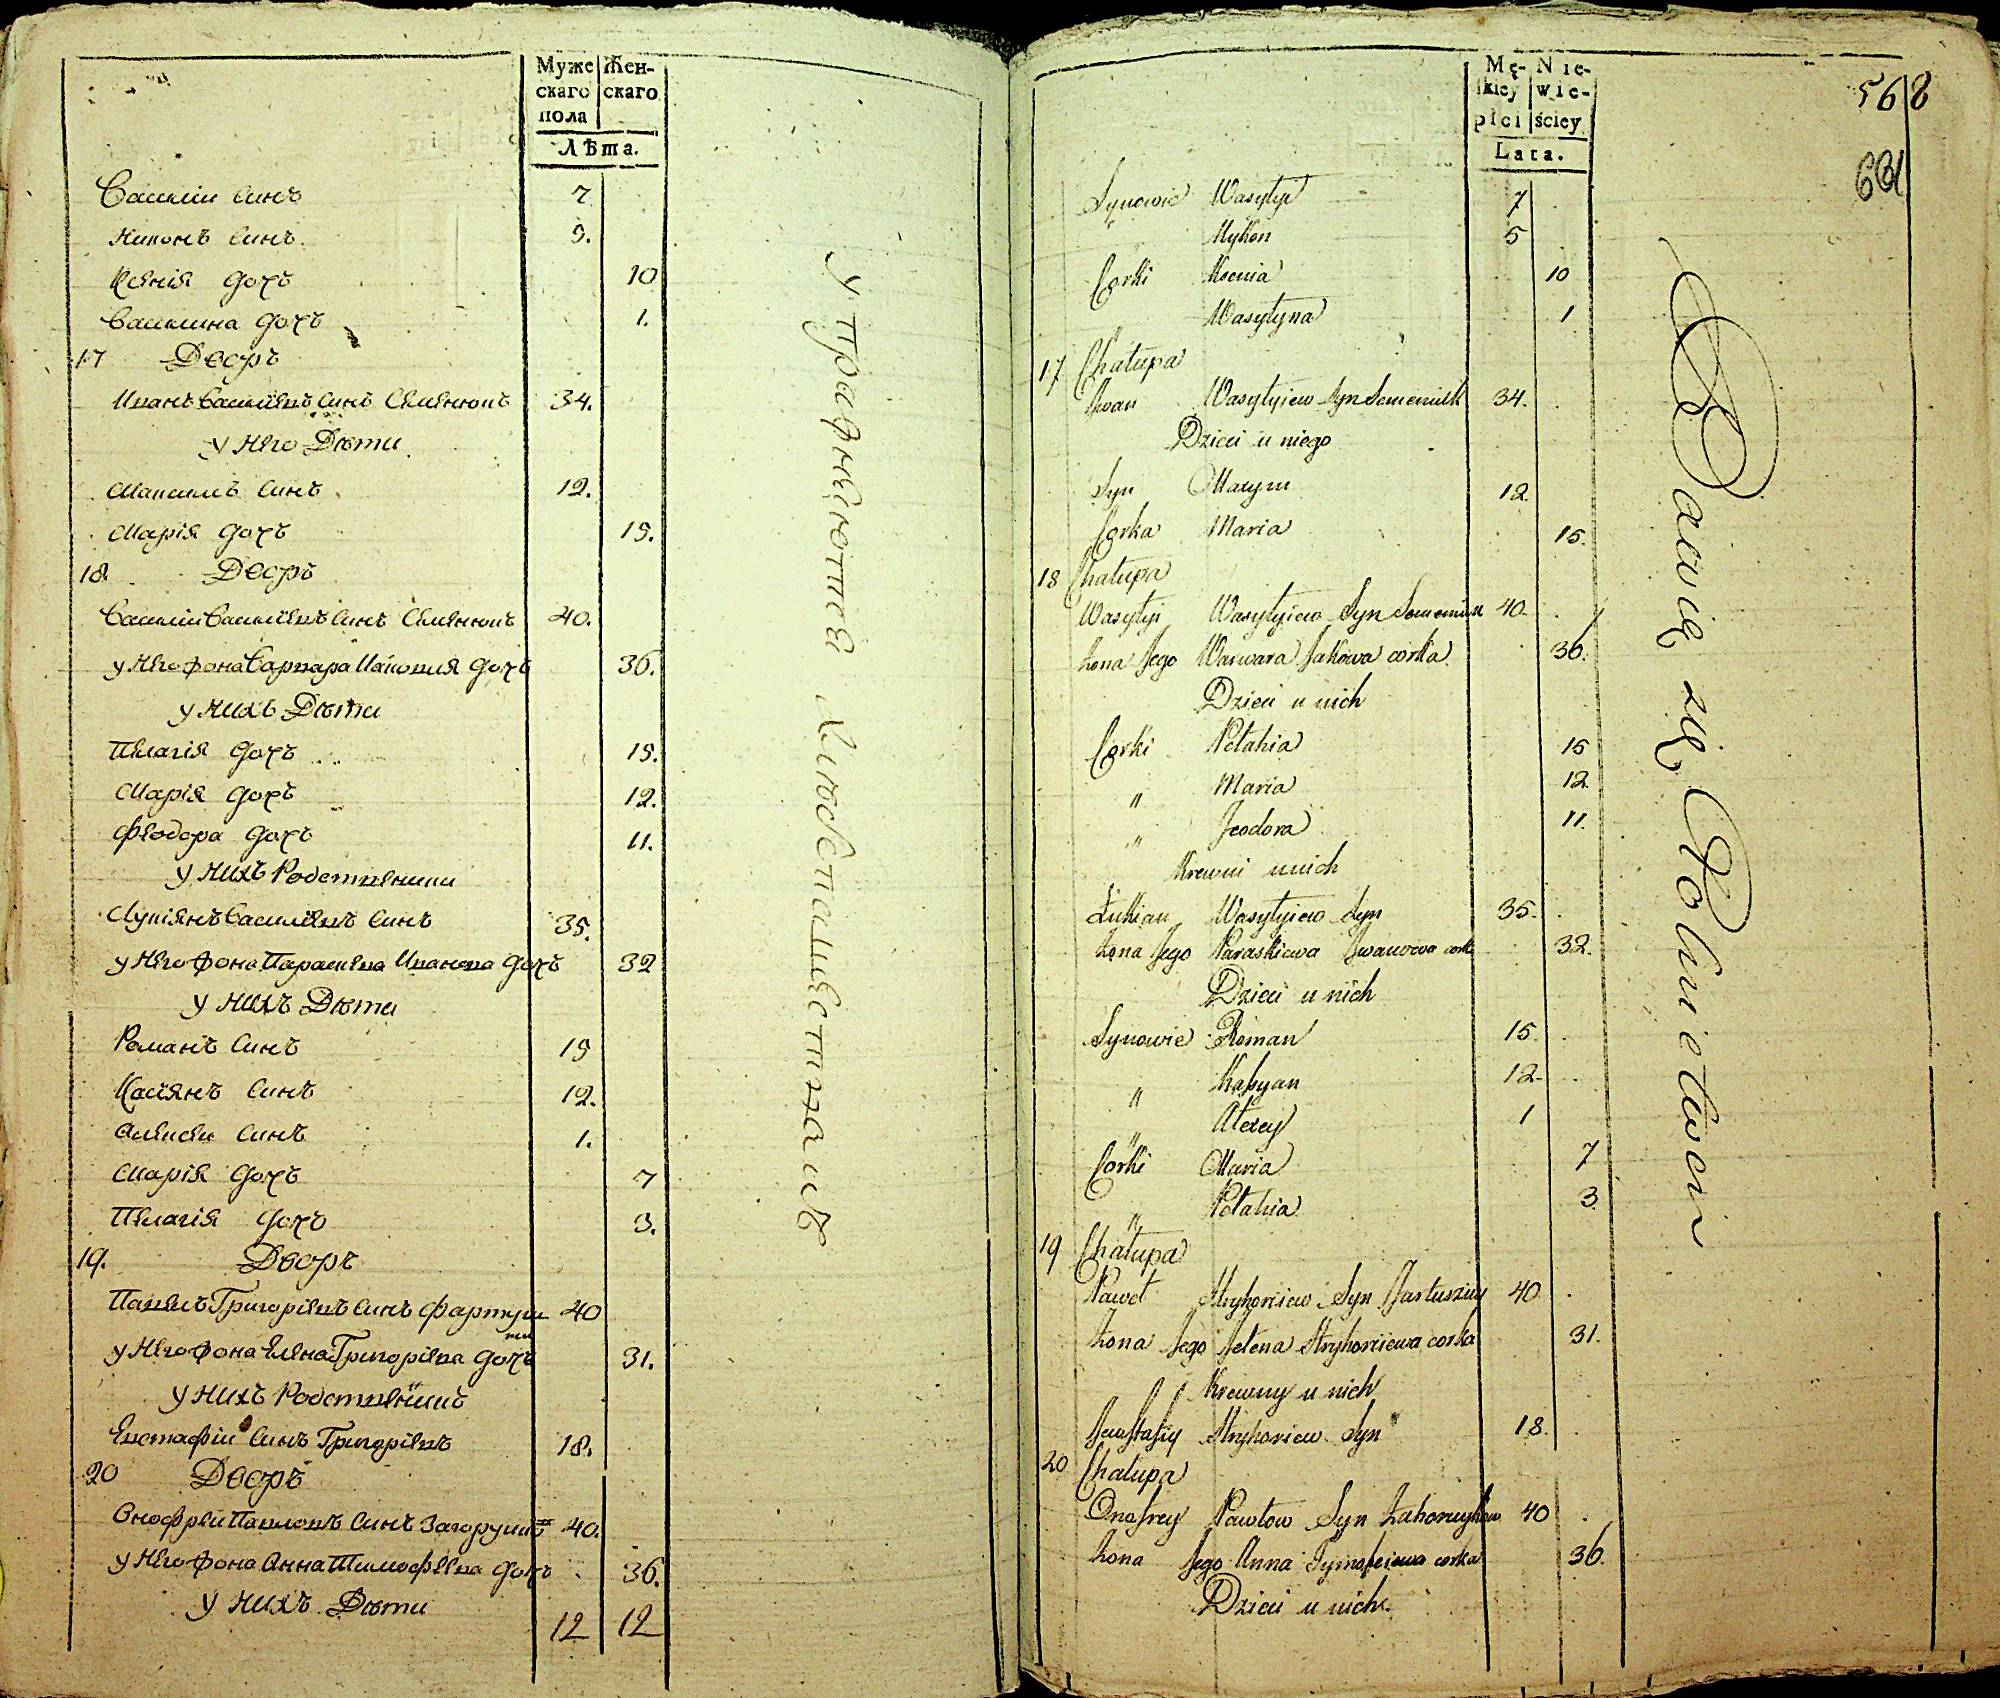 Муже скаго пола
Женскаго
Лѣта.
Василіи синъ 7
Никонъ синъ. 5.
Ксенія дочъ 10
Василина дочъ 1.
17 Дворъ
Иванъ Василіевъ синъ Семенюкъ 34.
у него Дѣти
Максимъ синъ. 12.
Марія дочъ 15.
18. Дворъ
Василіи Василіевъ синъ Семенюкъ 40.
у него жона Варвара Иаковия дочъ 36.
у нихъ Дѣти
Пелагія дочъ 15.
Марія дочъ 12.
Феодора дочъ 11.
у нихъ Родственики
Лукіянъ Василіевъ синъ 35.
у него жона Параскева Иванова дочъ 32
у нихъ Дѣти
Романъ синъ 15
Касіянъ синъ 12.
Алексеи синъ 1.
Марія дочъ 7
Пелагія дочъ 3.
19. Дворъ
Павелъ Григоріевъ синъ Фартуш 40
у него жона Елена Григоріева дочъ 31.
у нихъ Родственикъ
Евстафіи синъ Григоріевъ 18.
20 Дворъ
Онофреи Павловъ синъ 40.
у него жона Анна Тимофеева дочъ 36.
у нихъ Дѣти
12 12
упражнѣются Хлѣбопашествомъ
Mę-skiey płci
Nie-wie-ściey
Lata.
568
Synowie Wasylyi 7
Mykon 5
Corki Ksenia 10
" Wasylyna 1
17 Chałupa
Iwan Wasylyiew Syn Semeniuk 34.
Dzieci u niego
Syn Maxym 12
Corka Maria 15.
18 Chałupa
Wasylyi Wasylyiew Syn Semeniuk 40.
Żona Jego Warwara Jakowa corka 36.
Dzieci u nich
Corki Pełahia 15
" Maria 12.
" Feodora 11.
Krewni u nich
Łukian Wasylyiew Syn 35.
Żona Jego Paraskiewa Iwanowa cork 32.
Dzieci u nich
Synowie Roman 15.
" Kasyan 12.
" Alexey 1
Corki Maria 7
" Pełahia 3
19 Chałupa
Paweł Hryhoriew Syn Fartuszny 40
Żona Jego Jelena Hryhoriewa corka 31.
Krewny u nich
Jewstafiy Hryhoriew Syn 18.
20 Chałupa
Onofrey Pawłow Syn 40
Żona Jego Anna Tymofeiewa corka 36.
Dzieci u nich.
Bawią się Rolnictwem